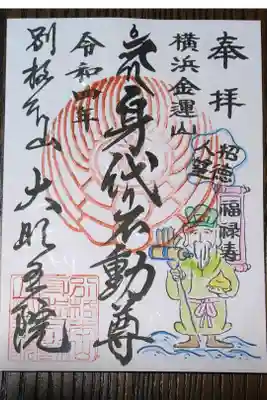 奉拝
横浜金運山
招徳
人望
福禄寿
身代不動尊
令和四年
別格本山 大明王院